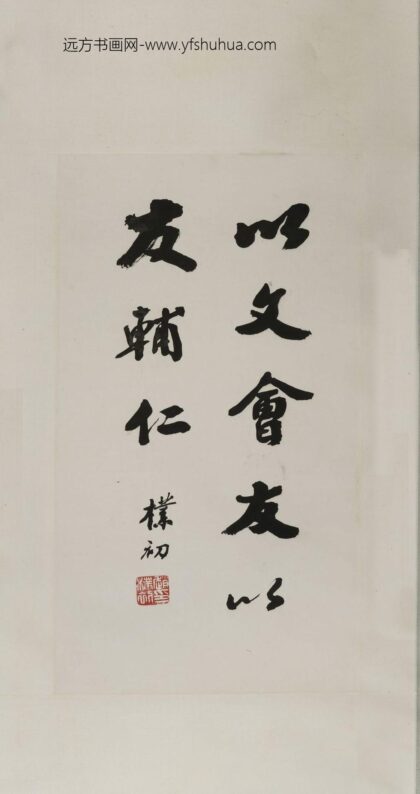 远方书画网-www.yfshuhua.com
以文會友以
友輔仁
樸初